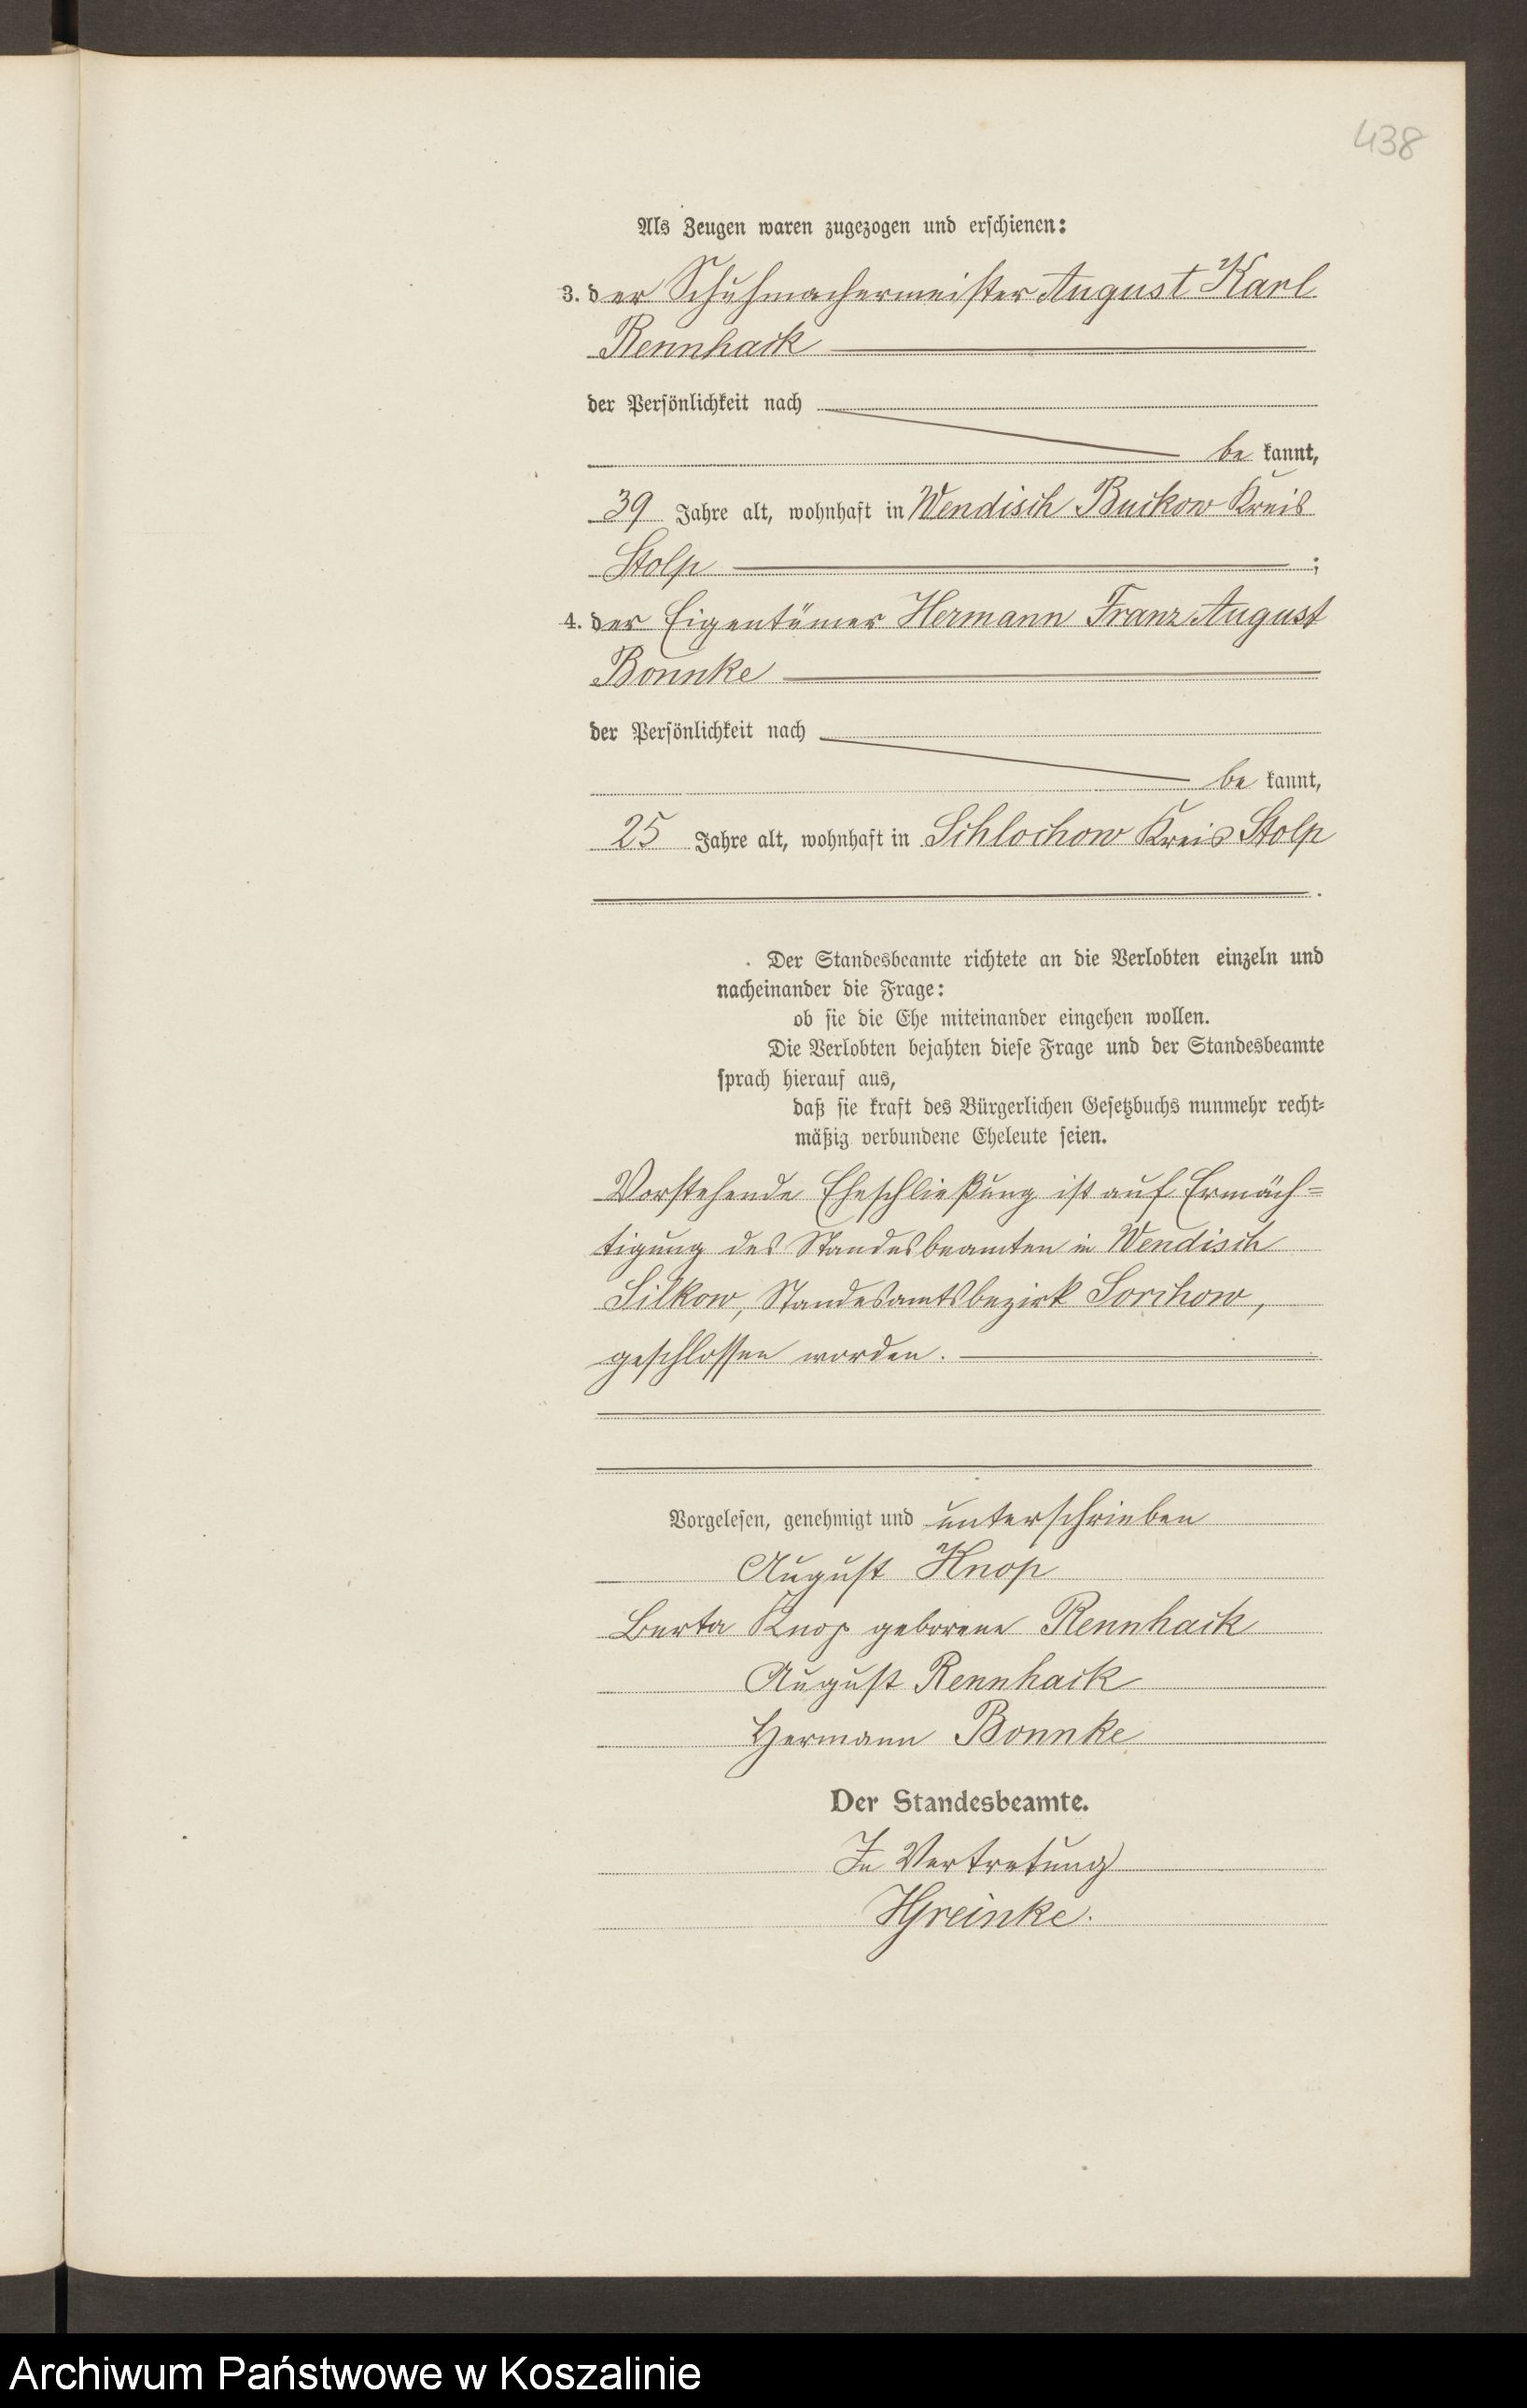 438
Als Zeugen waren zugezogen und erschienen:
3. der Schuhmachermeister August Karl
Rennhack
der Persönlichkeit nach
be kannt,
39 Jahre alt, wohnhaft in Wendisch Buckow Kreis
Stolp ;
4. der Eigentümer Hermann Franz August
Bonnke
der Persönlichkeit nach
be kannt,
25 Jahre alt, wohnhaft in Schlochow Kreis Stolp
.
Der Standesbeamte richtete an die Verlobten einzeln und
nacheinander die Frage:
ob sie die Ehe miteinander eingehen wollen.
Die Verlobten bejahten diese Frage und der Standesbeamte
sprach hierauf aus,
daß sie kraft des Bürgerlichen Gesetzbuchs nunmehr recht-
mäßig verbundene Eheleute seien.
Vorstehende Eheschließung ist auf Ermäch-
tigung des Standesbeamten in Wendisch
Silkow, Standesamtsbezirk Sorchow,
geschlossen worden.
Vorgelesen, genehmigt und unterschrieben
August Knop
Berta Knop geborene Rennhack
August Rennhack
Hermann Bonnke
Der Standesbeamte.
In Vertretung
HGreinke.
Archiwum Państwowe w Koszalinie